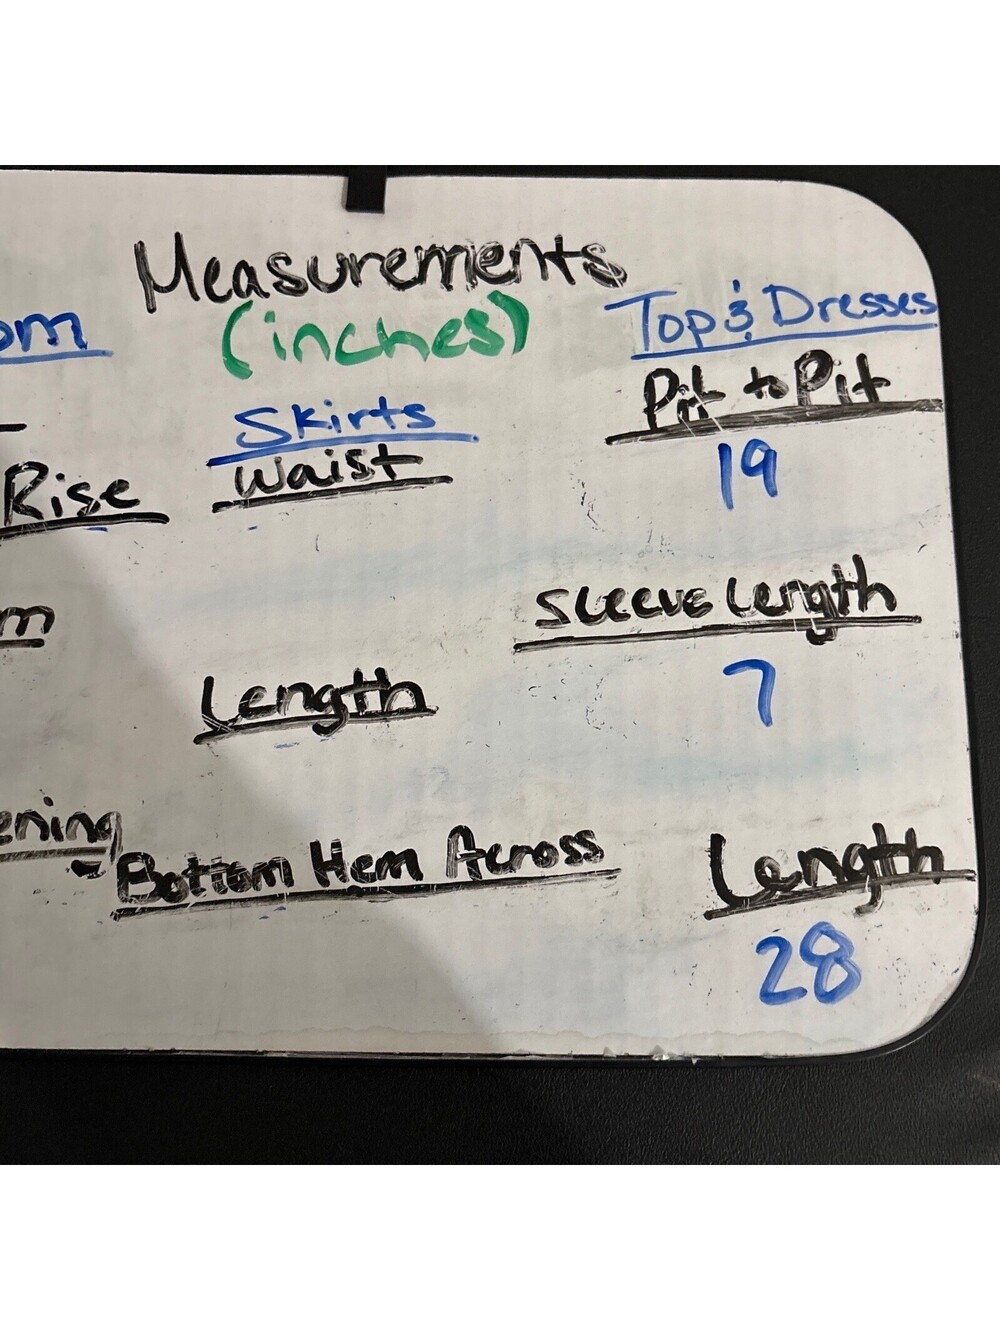 Measurements
(inches)
om
Rise
m
ening
Skirts
Waist
Length
Bottom Hem Across
Top & Dresses
Pit to Pit
19
Sleeve Length
7
Length
28